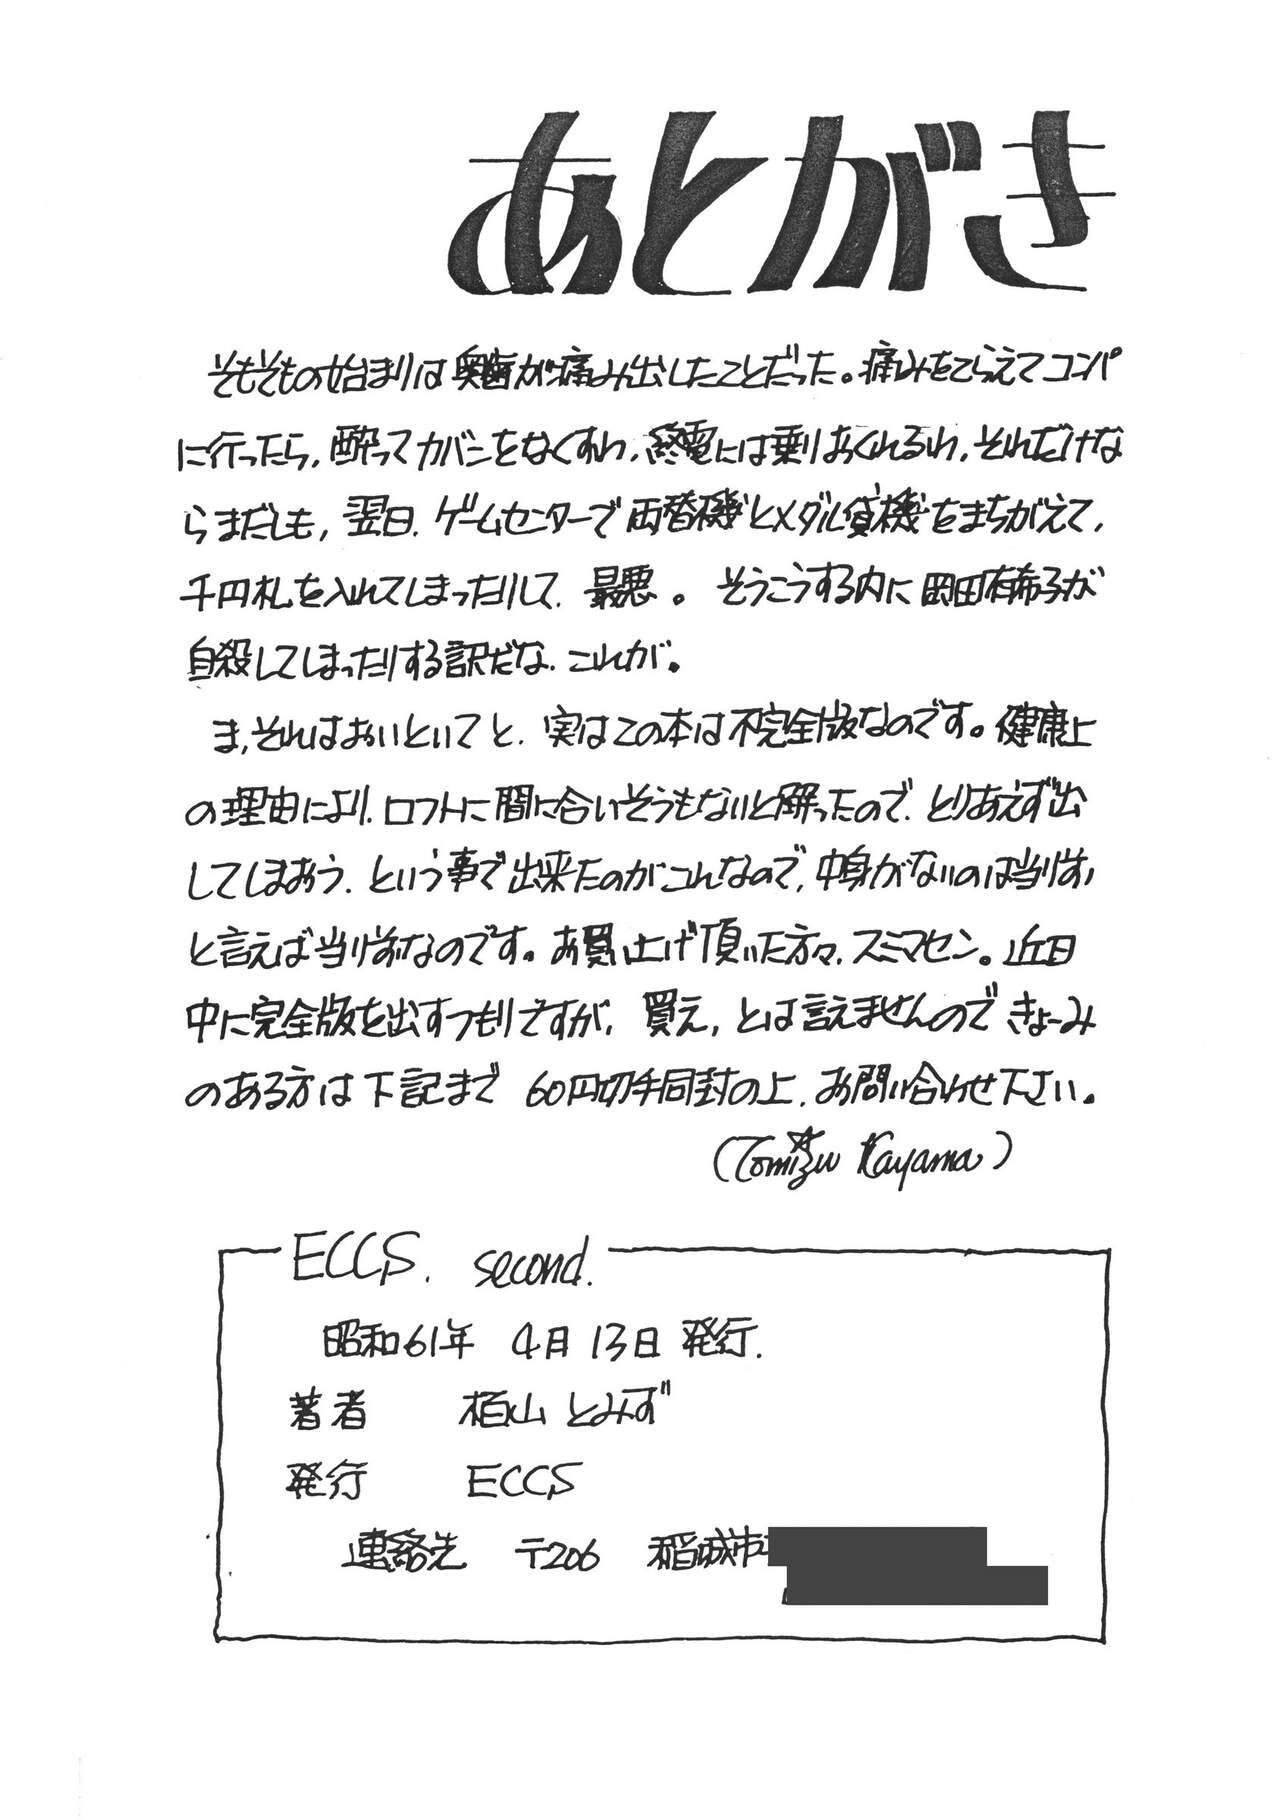 あとがき
そもそもの始まりは奥歯が痛み出したことだった。痛みをこらえてコンパ
に行ったら、酔ってカバンをなくすわ、終電には乗りおくれるわ、それだけな
らまだしも、翌日、ゲームセンターで両替機とメダル貸機をまちがえて、
千円札を入れてしまったりして、最悪。そうこうする内に岡田有希子が
自殺してしまったりする訳だな、これが。
ま、それはおいといてと、実はこの本は不完全版なのです。健康上
の理由により、ロフトに間に合いそうもないと解ったので、とりあえず出
してしまおう、という事で出来たのがこんなので、中身がないのは当り前
と言えば当り前なのです。お買い上げ頂いた方々、スミマセン。近日
中に完全版を出すつもりですが、買え、とは言えませんのできょーみ
のある方は下記まで 60円切手同封の上、お問い合わせ下さい。
(Tomizu Kayama)
ECCS. second.
昭和61年 4月13日発行.
著者 栢山 とみず
発行 ECCS
連絡先 〒206 稲城市